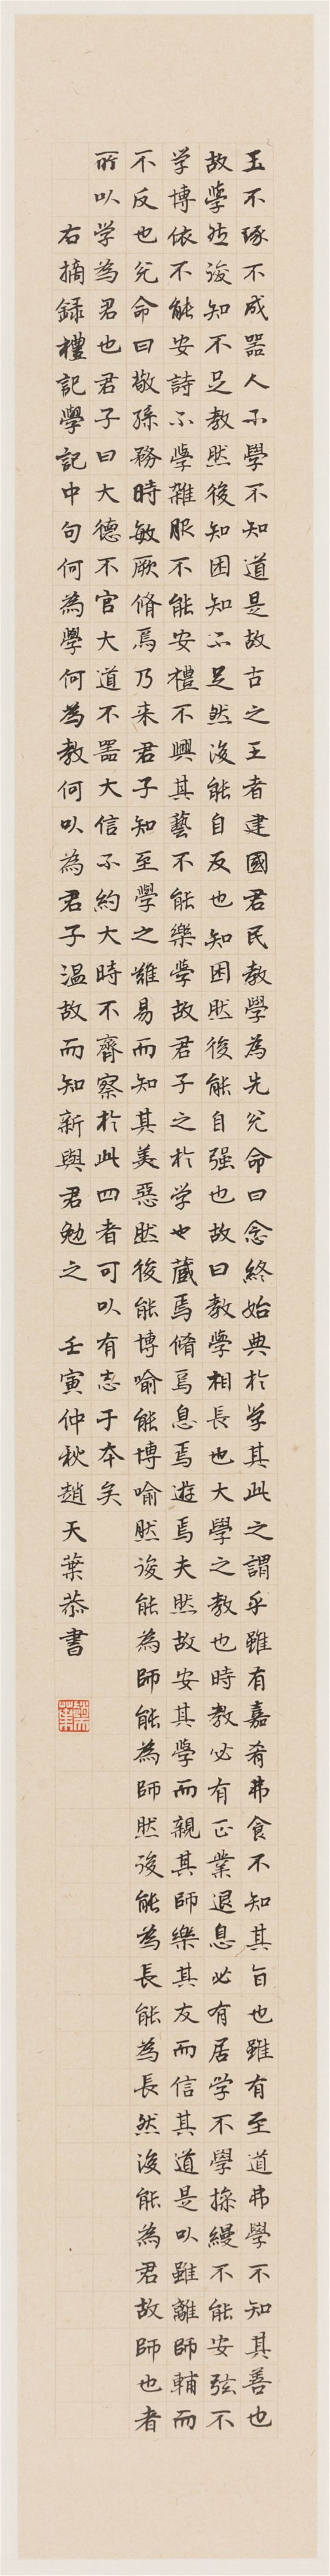 玉不琢不成器人不學不知道是故古之王者建國君民教學為先兌命曰念終始典於学其此之謂乎雖有嘉肴弗食不知其旨也雖有至道弗學不知其善也
故學然後知不足教然後知困知不足然後能自反也知困然後能自强也故曰教學相長也大學之教也時教必有正業退息必有居学不學操縵不能安弦不
学博依不能安詩不學雜服不能安禮不興其藝不能樂學故君子之於学也藏焉脩焉息焉遊焉夫然故安其學而親其師樂其友而信其道是以雖離師輔而
不反也兌命曰敬孫務時敏厥脩焉乃来君子知至學之難易而知其美惡然後能博喻能博喻然後能為師能為師然後能為長能為長然後能為君故師也者
所以学為君也君子曰大德不官大道不器大信不約大時不齊察於此四者可以有志于本矣
右摘録禮記學記中句何為學何為教何以為君子温故而知新與君勉之 壬寅仲秋趙天葉恭書